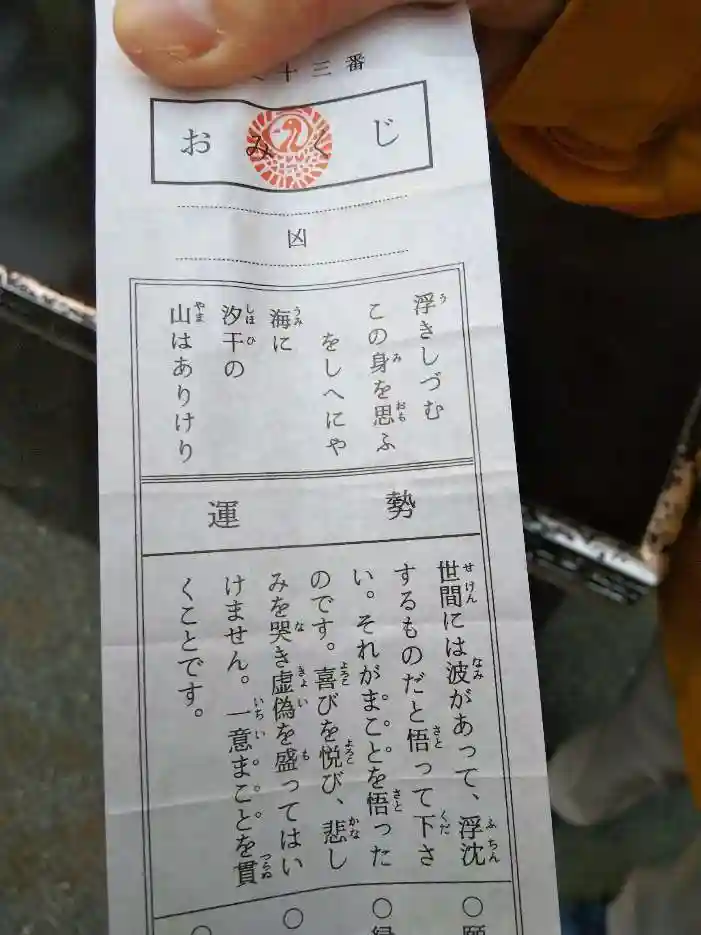 十三番
おみくじ
凶
浮きしづむ
この身を思ふ
をしへにや
海に
汐干の
山はありけり
運勢
世間には波があって、浮沈
するものだと悟って下さ
い。それがまことを悟った
のです。喜びを悦び、悲し
みを哭き虚偽を盛ってはい
けません。一意まことを貫
くことです。
○願
○縁
○
○